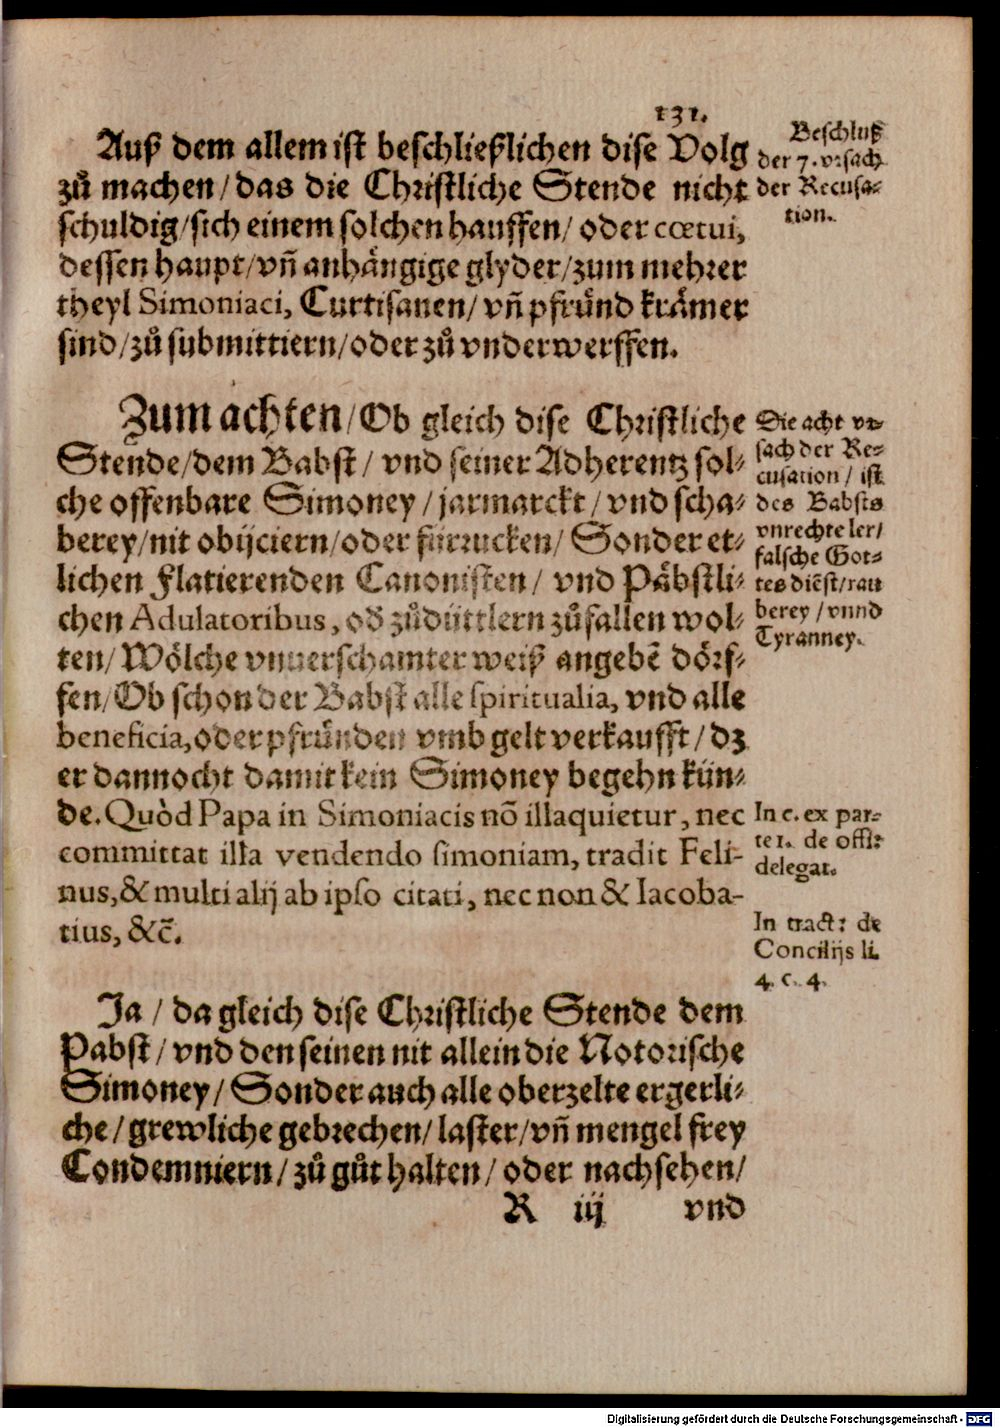 131.
Auß dem allem ist beschließlichen dise Volg
zů machen/das die Christliche Stende nicht
schuldig/sich einem solchen hauffen/ oder cœtui,
dessen haupt/vñ anhängige glyder/zum mehrer
theyl Simoniaci, Curtisanen/ vñ pfründ krämer
sind/zů submittiern/oder zů vnderwerffen.
Beschluß
der 7. vrsach
der Recusa-
tion.
Zum achten/Ob gleich dise Christliche
Stende/dem Babst/ vnd seiner Adherentz sol-
che offenbare Simoney/jarmarckt/vnd scha-
berey/nit obijciern/oder fürrucken/ Sonder et-
lichen Flatierenden Canonisten/ vnd Päbstli-
chen Adulatoribus, oď zůdüttlern zůfallen wol-
ten/Wölche vnuerschamter weiß angebẽ dörf-
fen/Ob schon der Babst alle spiritualia, vnd alle
beneficia,oder pfründen vmb gelt verkaufft/dz
er dannocht damit kein Simoney begehn kün-
de. Quòd Papa in Simoniacis nõ illaquietur, nec
committat illa vendendo simoniam, tradit Feli-
nus,& multi alij ab ipso citati, nec non & Iacoba-
tius, &c̃.
Die acht vr-
sach der Re-
cusation/ ist
des Babsts
vnrechte ler/
falsche Got-
tes diẽst/rau
berey/vnnd
Tyranney.
In c. ex par-
te 1. de offi:
delegat.
In tract: de
Concilijs li.
4. c. 4.
Ja/ da gleich dise Christliche Stende dem
Pabst/ vnd den seinen nit allein die Notorische
Simoney/ Sonder auch alle oberzelte ergerli-
che/grewliche gebrechen/laster/vñ mengel frey
Condemniern/zů gůt halten/oder nachsehen/
R iij vnd
Digitalisierung gefördert durch die Deutsche Forschungsgemeinschaft - DFG